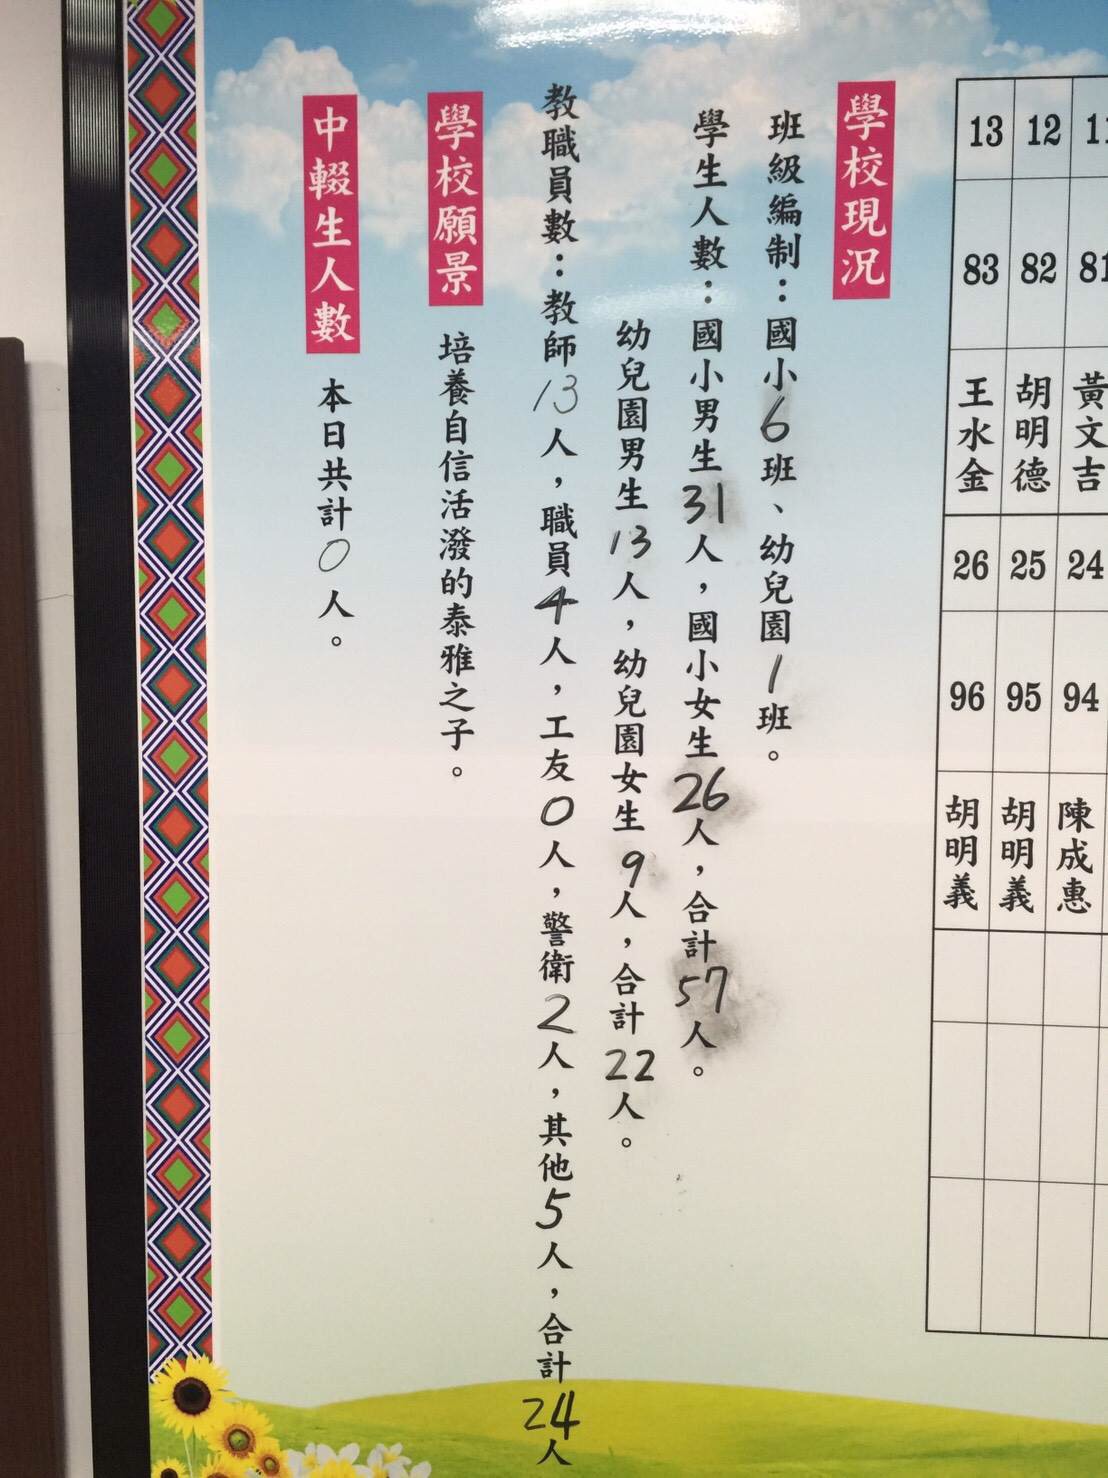 13
83
王水金
26
96
胡明義
12
82
胡明德
25
95
胡明義
81
黃文吉
24
94
陳成惠
學校現況
班級編制：國小6班、幼兒園1班。
學生人數：國小男生31人，國小女生26人，合計57人。
幼兒園男生13人，幼兒園女生9人，合計22人。
教職員數：教師13人，職員4人，工友0人，警衛2人，其他5人，合計24人
學校願景
培養自信活潑的泰雅之子。
中輟生人數
本日共計0人。